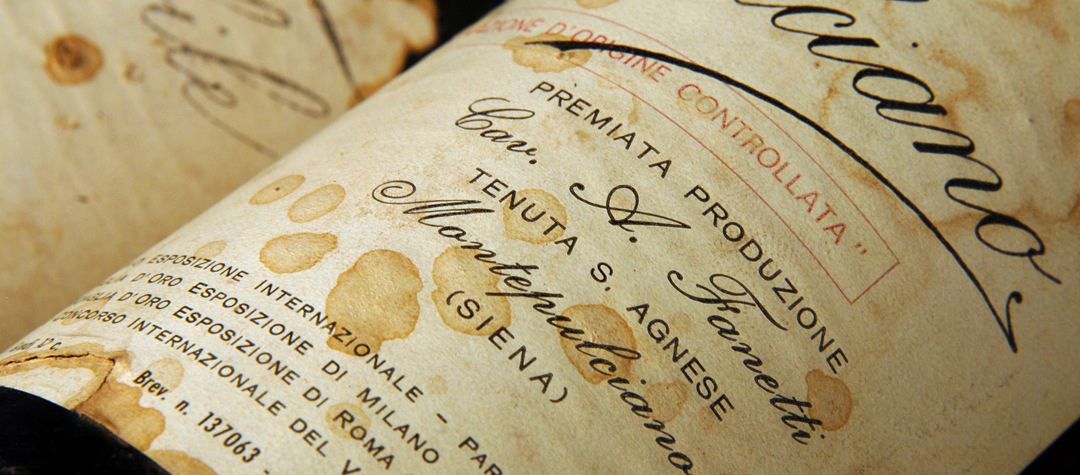 ciano
AZIONE D'ORIGINE CONTROLLATA"
PREMIATA PRODUZIONE
Cav. A. Fanetti
TENUTA S. AGNESE
Montepulciano
(SIENA)
ESPOSIZIONE INTERNAZIONALE – PAR
D'ORO ESPOSIZIONE DI MILANO
D'ORO ESPOSIZIONE DI ROMA
CONCORSO INTERNAZIONALE DEL V
Brev. n. 137063 -